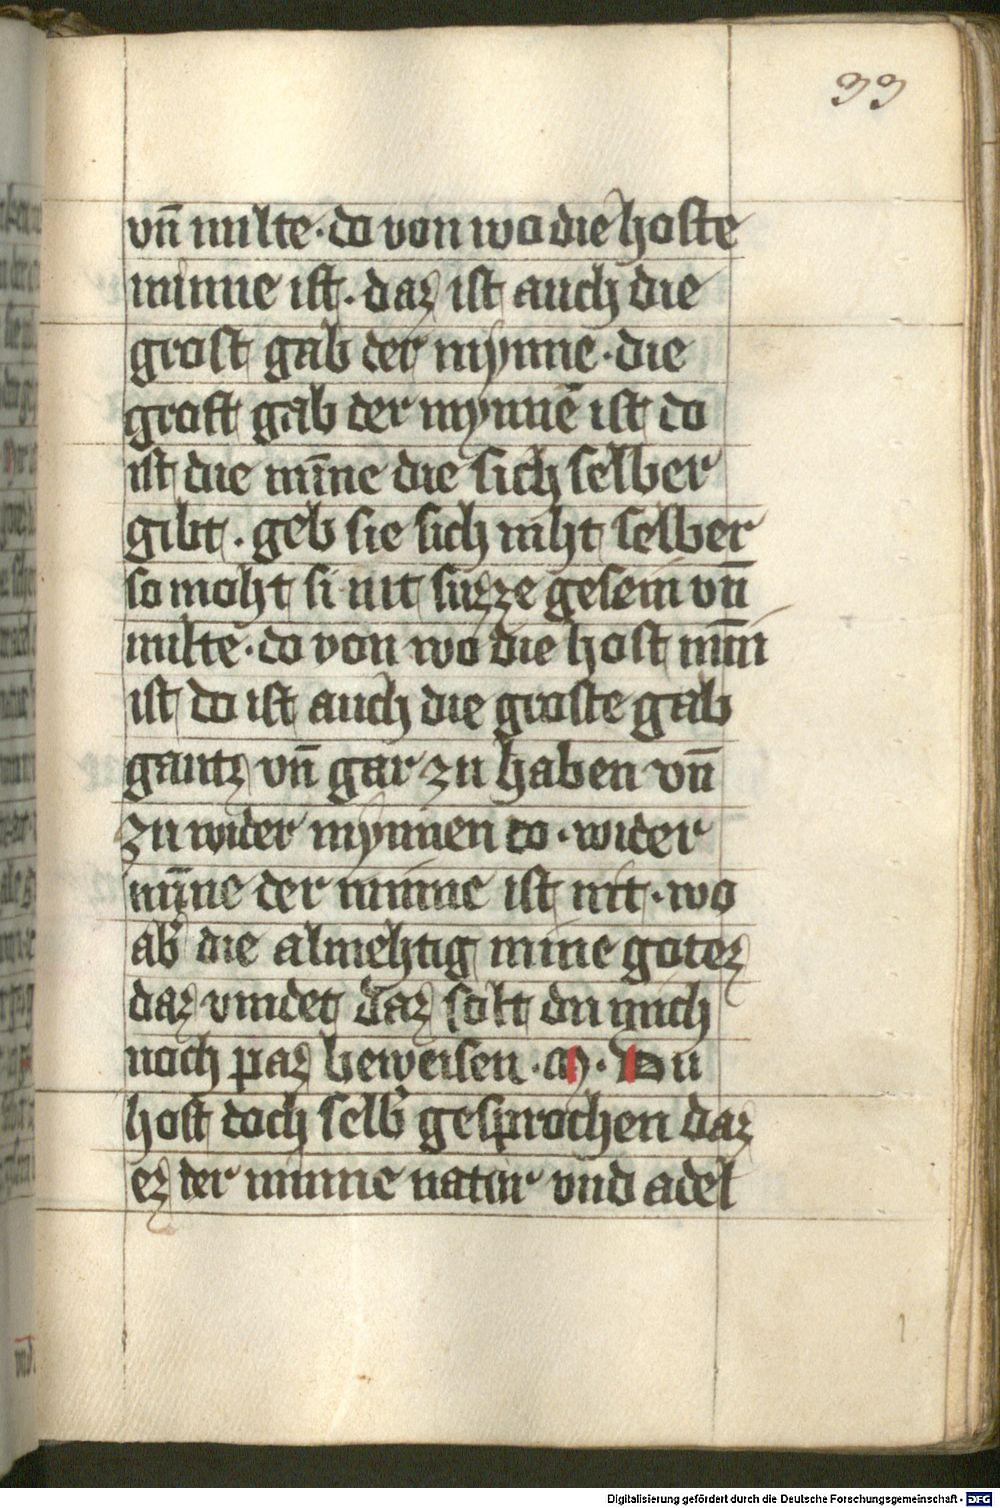 33
vn̄ milte · do von wo die hoste
minne ist · daz ist auch die
grost gab der mynne · die
grost gab der mynnē ist do
ist die mīne die sich selber
gibt · geb sie sich niht selber
so moht si nit suzze gesein vn̄
milte · do von wo die host mīn
ist do ist auch die groste gab
gantz vn̄ gar zu haben vn̄
zu wider mynnen do · wider
mīne der minne ist nit · wo
ab' die almehtig mine gotez
daz vindet daz solt du mich
noch paz beweisen · M · Du
host doch selb' gesprochen daz
ez der minne natur vnd adel
Digitalisierung gefördert durch die Deutsche Forschungsgemeinschaft - DFG